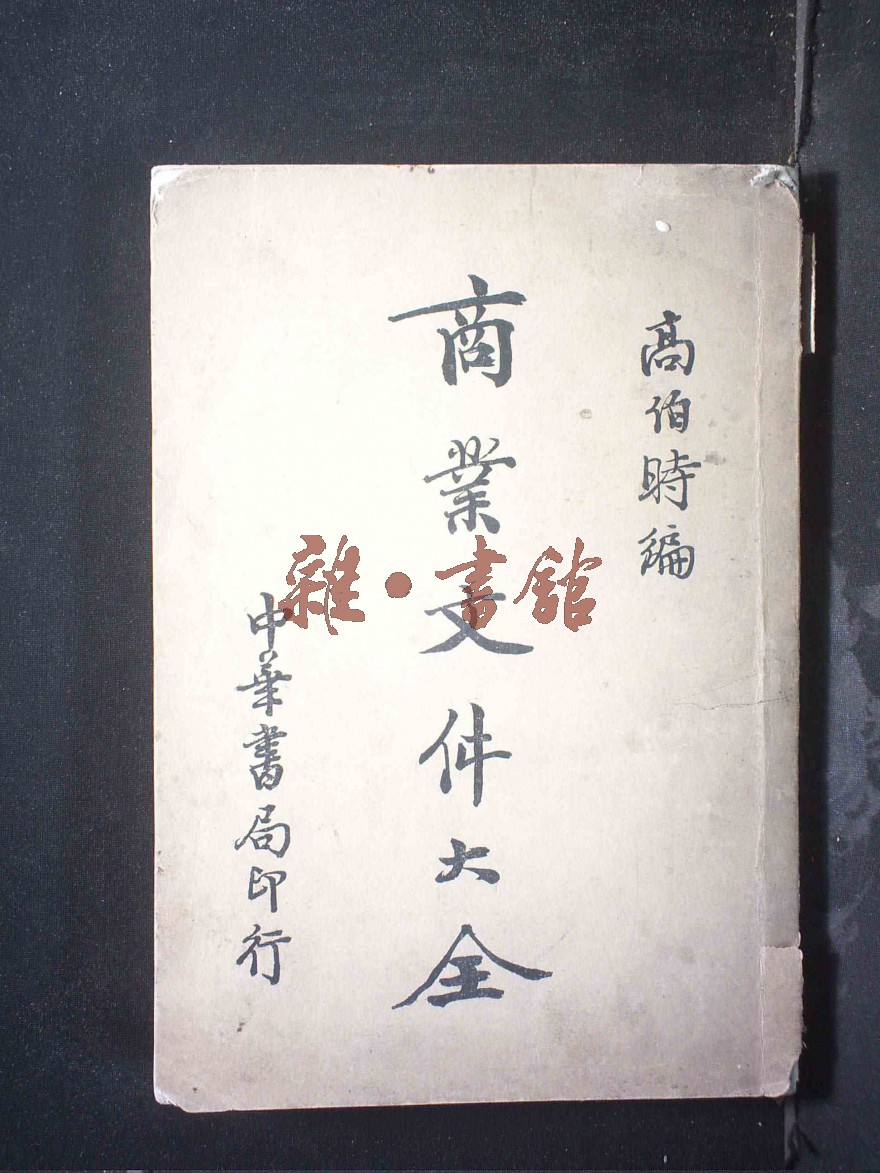 高伯時編
商業文件大全
中華書局印行
雜·書館